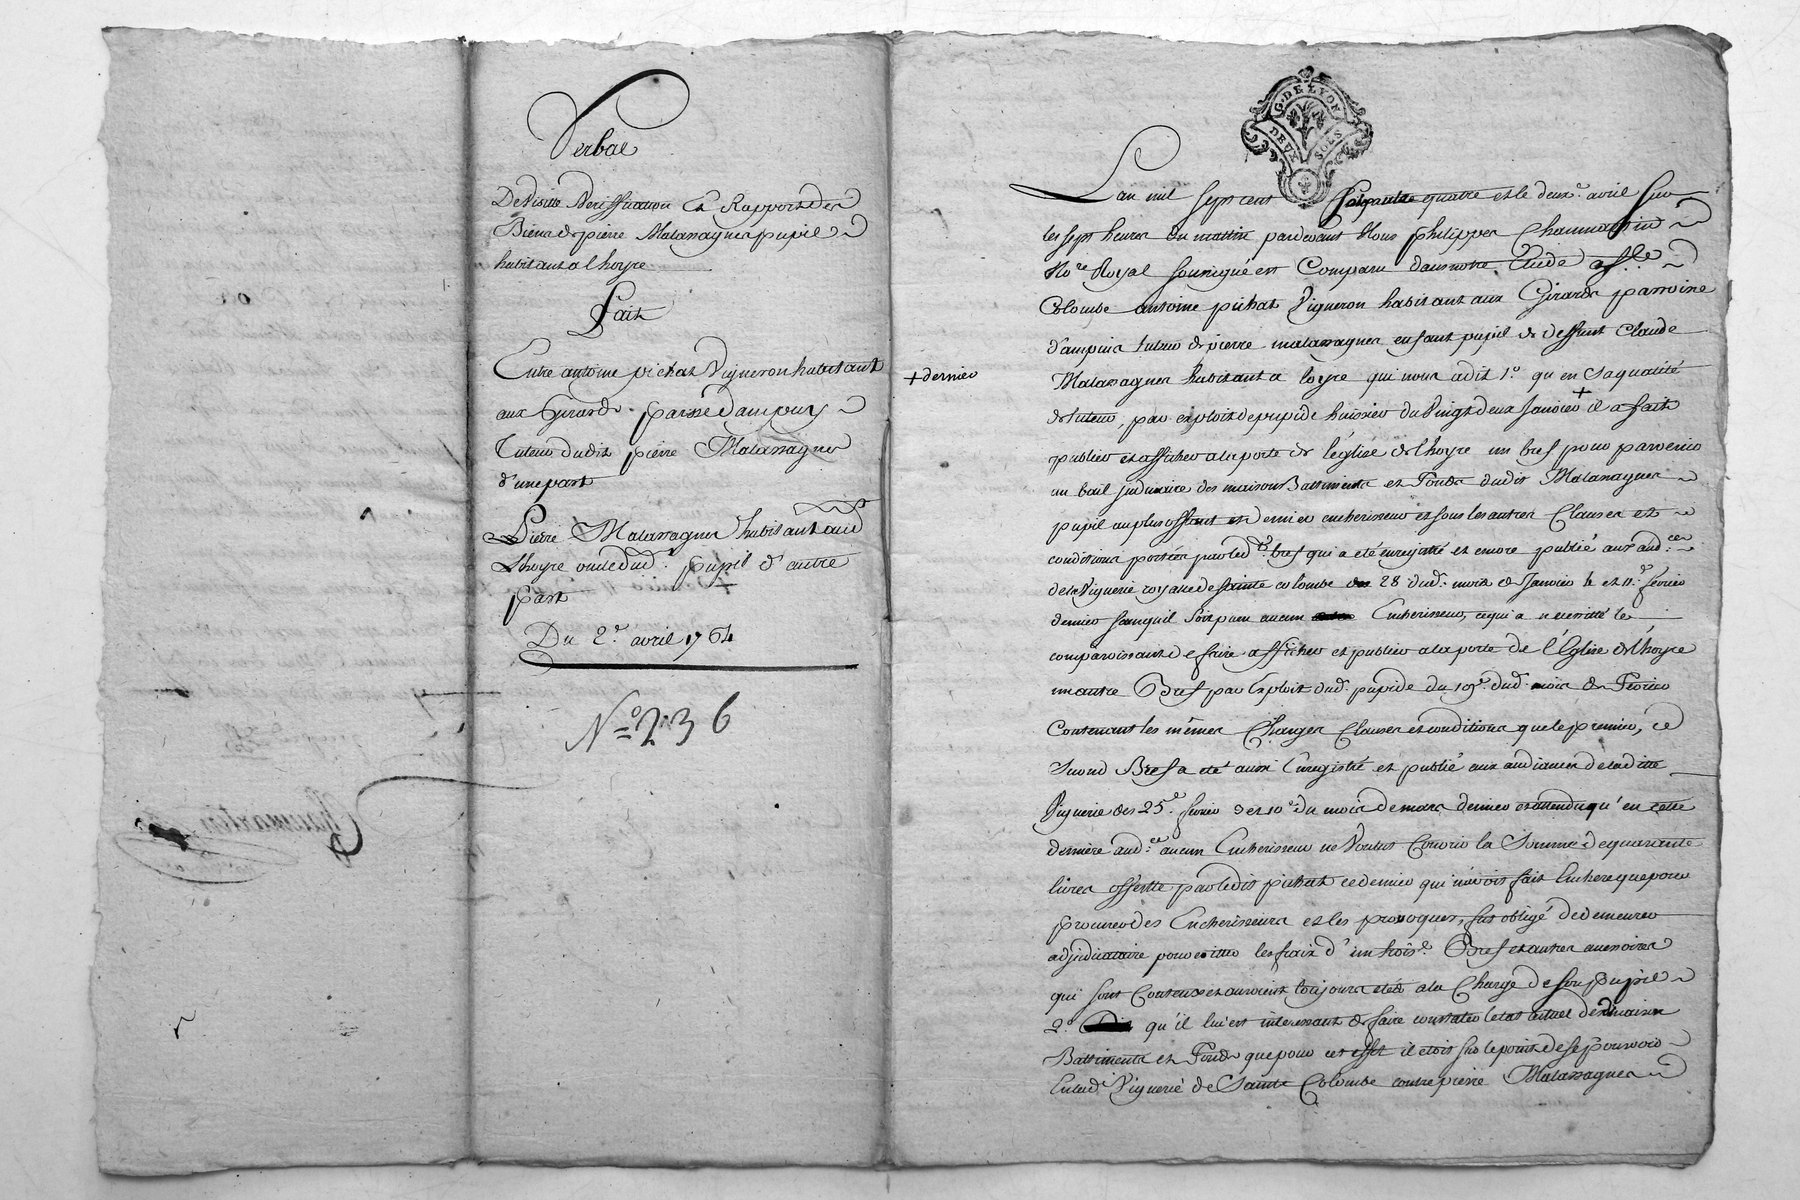 Verbal
De Visitte Veriffication Et Rapport des
Biens de pierre Malassagnes pupil
habitant a lhoyre
Fait
Entre antoine pichat Vigneron habitant
aux Girards parsse d'ampuys
Tuteur dudit pierre Malassagnes
d'une part
Pierre Malassagnes habitant aud
Lhoyre oncle dud. pupil d'autre
part
Du 2e avril 1764
No 236
+ dernier
G. DE LYON
DEUX SOLS
Lan mil sept cent soixante quatre et le deuxe avril sur
les sept heures du mattin pardevant Nous philippes Chaumartin
Nore Royal soussigné est Comparu dans notre Etude a Ste
Colombe antoine pichat Vigneron habitant aux Girards parroisse
d'ampuis tuteur de pierre malassagnes enfant pupil de deffunt Claude
Malassagnes habitant a loyre qui nous a dit 1o qu'en sa qualité
de tuteur, par exploit de pupide huissier du Vingt deux Janvier + il a fait
publier et afficher a la porte de l'église de lhoyre un bref pour parvenir
au bail judiciaire des maisons Battiments et Fonds dudit Malassagnes
pupil au plus offrant et dernier encherisseur et sous les autres Clauses et
conditions portées par led. bref qui a eté enregistré et encore publié aux audces
de la Viguerie royalle de sainte colombe 28 dud. mois de Janvier 4 et 11e fevrier
dernier sans quil soit paru aucun Encherisseur, ce qui a necessitté le
comparoissant de faire afficher et publier a la porte de l'Eglise de lhoyre
un autre Bref par Exploit dud. pupide du 19e dud. mois de Fevrier
Contenant les mêmes Charges Clauses et conditions que le premier, ce
second Bref a eté aussi Enregistré et publié aux audiances de laditte
Viguerie des 25e fevrier 3 et 10e du mois de mars dernier et attendu qu'en cette
dernière audce aucun Encherisseur ne Voulut Couvrir la Somme de quarante
livres offertte par ledit pichat ce dernier qui n'avoit fait Enchere que pour
procurer des Encherisseurs et les provoquer, fut obligé de demeurer
adjudicataire pour evitter les fraix d'un troise Bref et autres accessoires
qui sont Couteux et auroient toujours etés a la Charge de son pupil
2o qu'il lui est interessant de faire constater l'etat actuel des maisons
Battiments et Fonds que pour cet effet il etoit sur le point de se pourvoir
En lade Viguerie de Sainte Colombe contre pierre Malassagnes